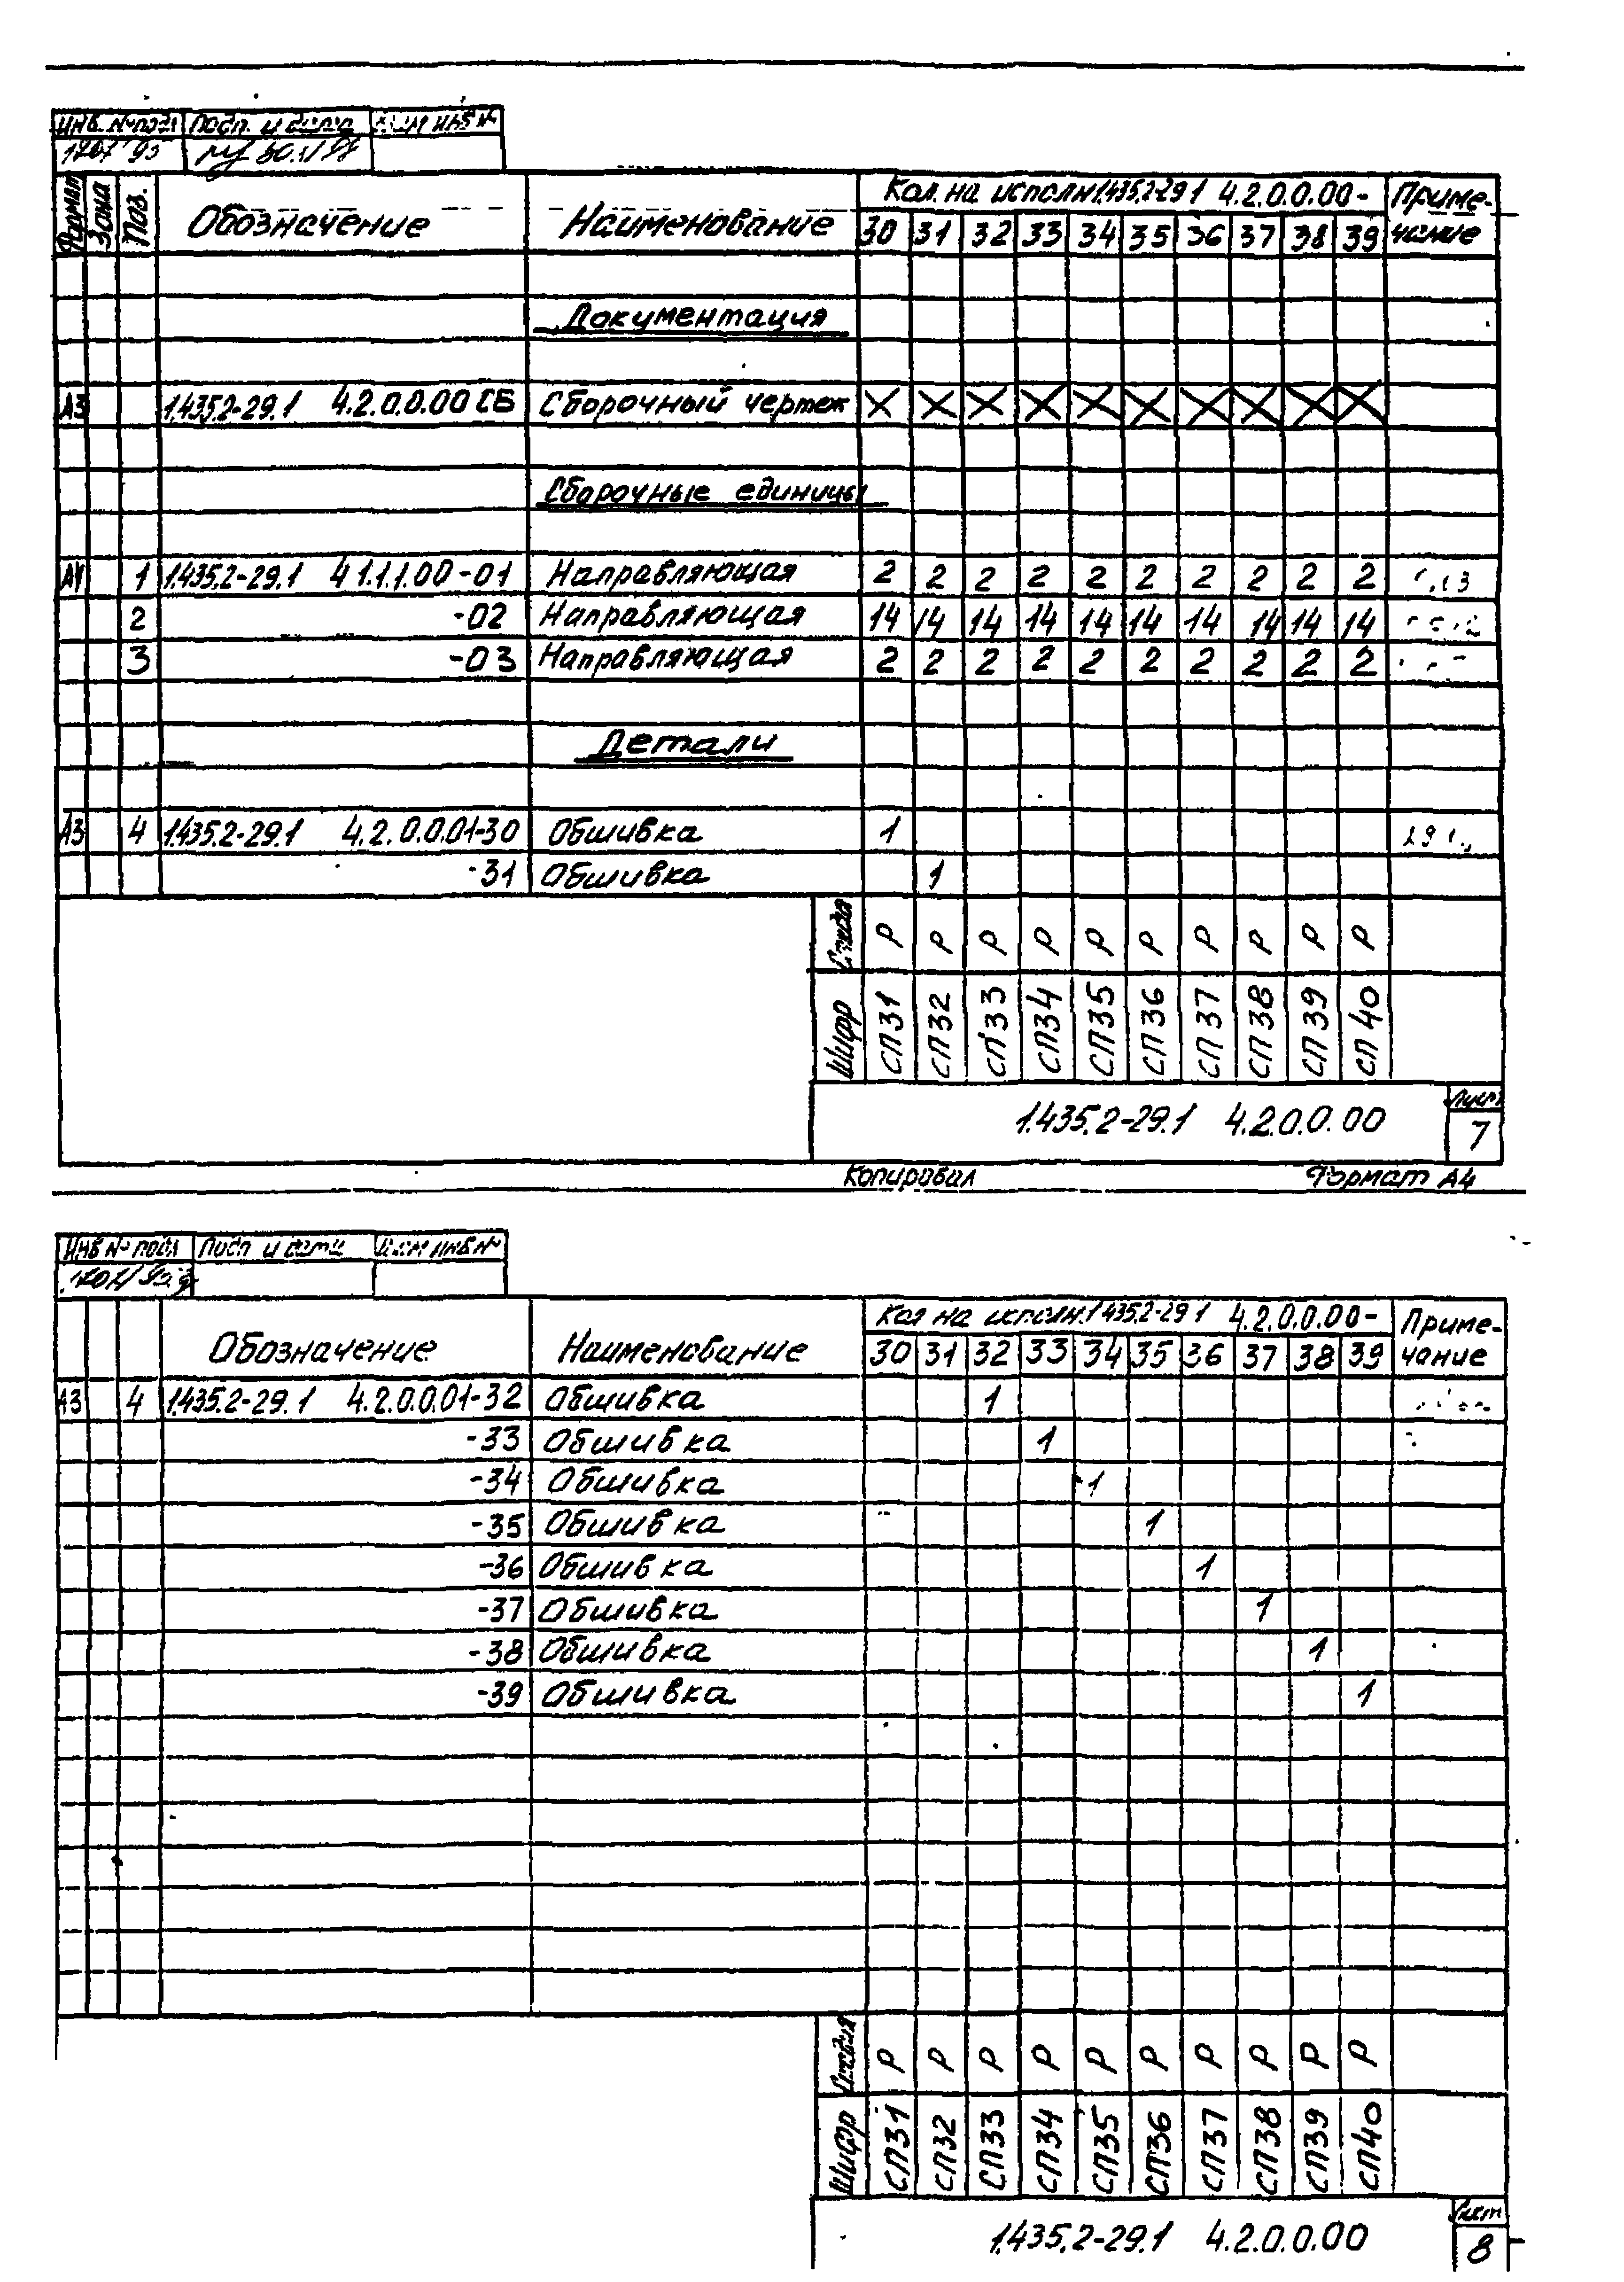 Инв. № подл Подп. и дата Взам инв №
Формат Зона Поз. Обозначение Наименование Кол. на исполн 1.435.2-29.1 4.2.0.0.00- Приме-
30 31 32 33 34 35 36 37 38 39 чание
Документация
А3 1.435.2-29.1 4.2.0.0.00 СБ Сборочный чертеж X X X X X X X X X X
Сборочные единицы
А4 1 1.435.2-29.1 4.1.1.1.00-01 Направляющая 2 2 2 2 2 2 2 2 2 2
2 -02 Направляющая 14 14 14 14 14 14 14 14 14 14
3 -03 Направляющая 2 2 2 2 2 2 2 2 2 2
Детали
А3 4 1.435.2-29.1 4.2.0.0.01-30 Обшивка 1
-31 Обшивка 1
Стадия Р Р Р Р Р Р Р Р Р Р
Шифр СП31 СП32 СП33 СП34 СП35 СП36 СП37 СП38 СП39 СП40
1.435.2-29.1 4.2.0.0.00 Лист
7
Копировал Формат А4
Инв № подл Подп и дата Взам инв №
Обозначение Наименование Кол на исполн. 1.435.2-29.1 4.2.0.0.00- Приме-
30 31 32 33 34 35 36 37 38 39 чание
А3 4 1.435.2-29.1 4.2.0.0.01-32 Обшивка 1
-33 Обшивка 1
-34 Обшивка 1
-35 Обшивка 1
-36 Обшивка 1
-37 Обшивка 1
-38 Обшивка 1
-39 Обшивка 1
Стадия Р Р Р Р Р Р Р Р Р Р
Шифр СП31 СП32 СП33 СП34 СП35 СП36 СП37 СП38 СП39 СП40
1.435.2-29.1 4.2.0.0.00 Лист
8